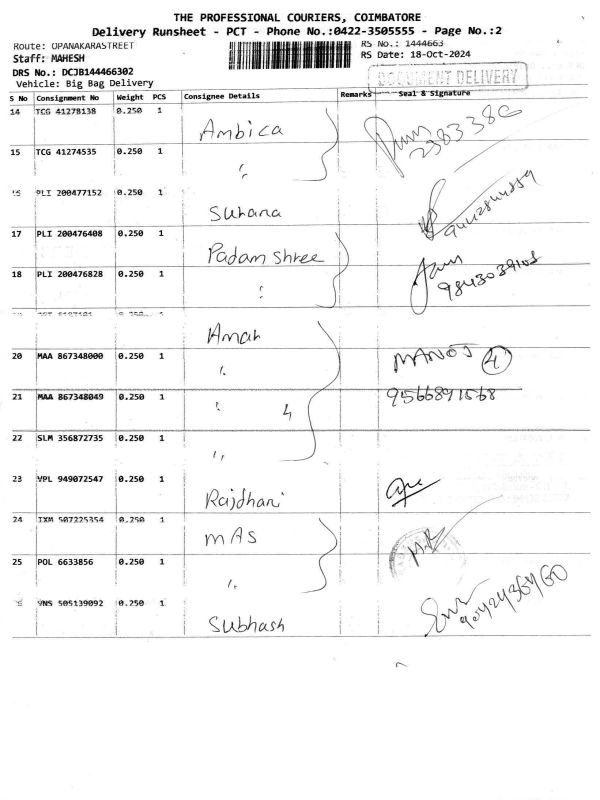 THE PROFESSIONAL COURIERS, COIMBATORE
Delivery Runsheet - PCT - Phone No.:0422-3505555 - Page No.:2
Route: OPANAKARASTREET RS No.: 1444663
Staff: MAHESH RS Date: 18-Oct-2024
DRS No.: DCJB144466302
DOCUMENT DELIVERY
Vehicle: Big Bag Delivery
S No Consignment No Weight PCS Consignee Details Remarks Seal & Signature
14 TCG 41278138 0.250 1 Ambica
2383386
15 TCG 41274535 0.250 1 "
PLI 200477152 0.250 1 Suhana
17 PLI 200476408 0.250 1 Padam Shree
18 PLI 200476828 0.250 1 "
Amar
20 MAA 867348000 0.250 1 " MANOJ 4
21 MAA 867348049 0.250 1 " 4 9566891568
22 SLM 356872735 0.250 1 "
23 VPL 949072547 0.250 1 Rajdhani
24 IXM 507225354 0.250 1 MAS
25 POL 6633856 0.250 1 "
VNS 505139092 0.250 1 Subhash